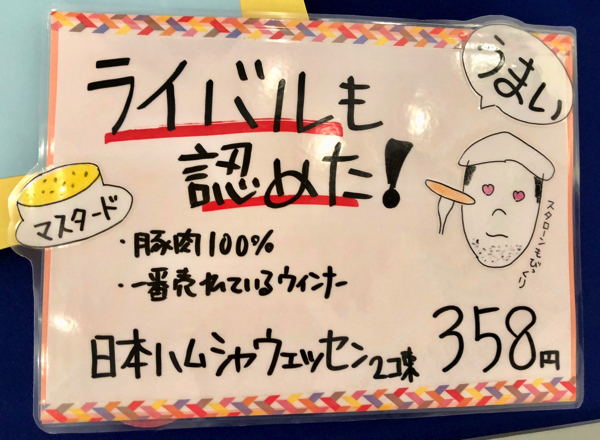 うまい
ライバルも
認めた!
マスタード
・豚肉100%
・一番売れているウィンナー
スタローンもびっくり
日本ハムシャウエッセン2コ束 358円